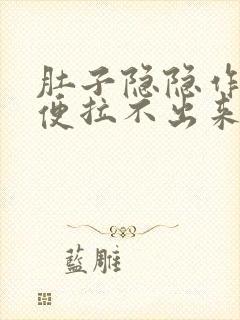 肚子隐隐作
便拉不出来
藍雕